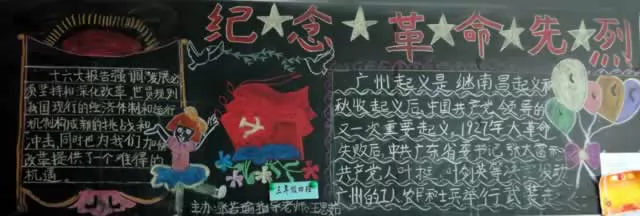 纪念革命先烈
十六大报告强调,发展必
须坚持和深化改革。世贸规则
我国现行的经济体制和运行
机制构成新的挑战和
冲击,同时也为我们加快
改革提供了个难得的
机遇。
广州起义是继南昌起义和
秋收起义后,中国共产党领导的
又一次重要起义。1927年大革命
失败后,中共广东省委书记张太雷和
共产党人叶挺、
发动
广州的工人、农民和士兵举行武装
三年级四班
主办:张若瑜
老师:王思茹